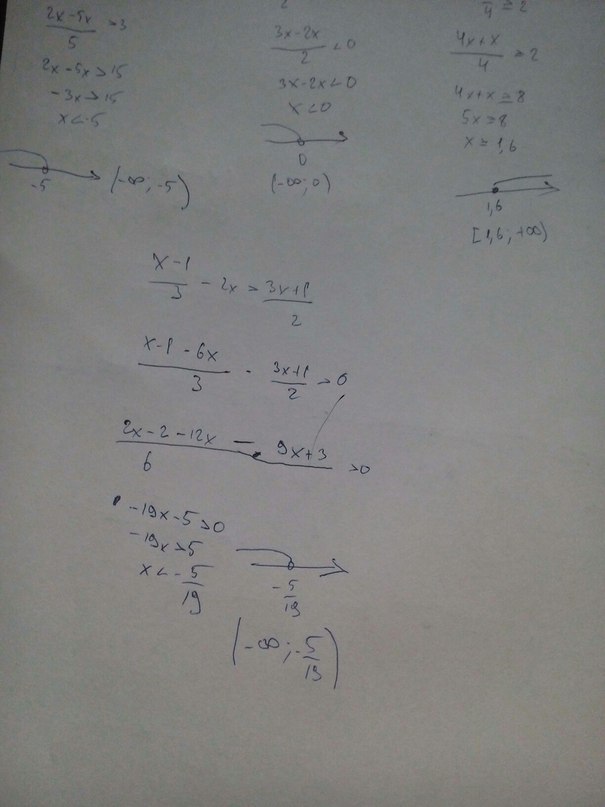 2x-5x/5 >3
2x-5x>15
-3x>15
x<-5
-5
(-∞; -5)
2
3x-2x/2 <0
3x-2x<0
x<0
0
(-∞; 0)
/4 ≥2
4x+x/4 ≥2
4x+x≥8
5x≥8
x≥1,6
1,6
[1,6; +∞)
x-1/3 - 2x > 3x+1/2
x-1-6x/3 - 3x+1/2 >0
2x-2-12x - 9x+3/6 >0
-19x-5>0
-19x>5
x<-5/19
-5/19
(-∞; -5/19)